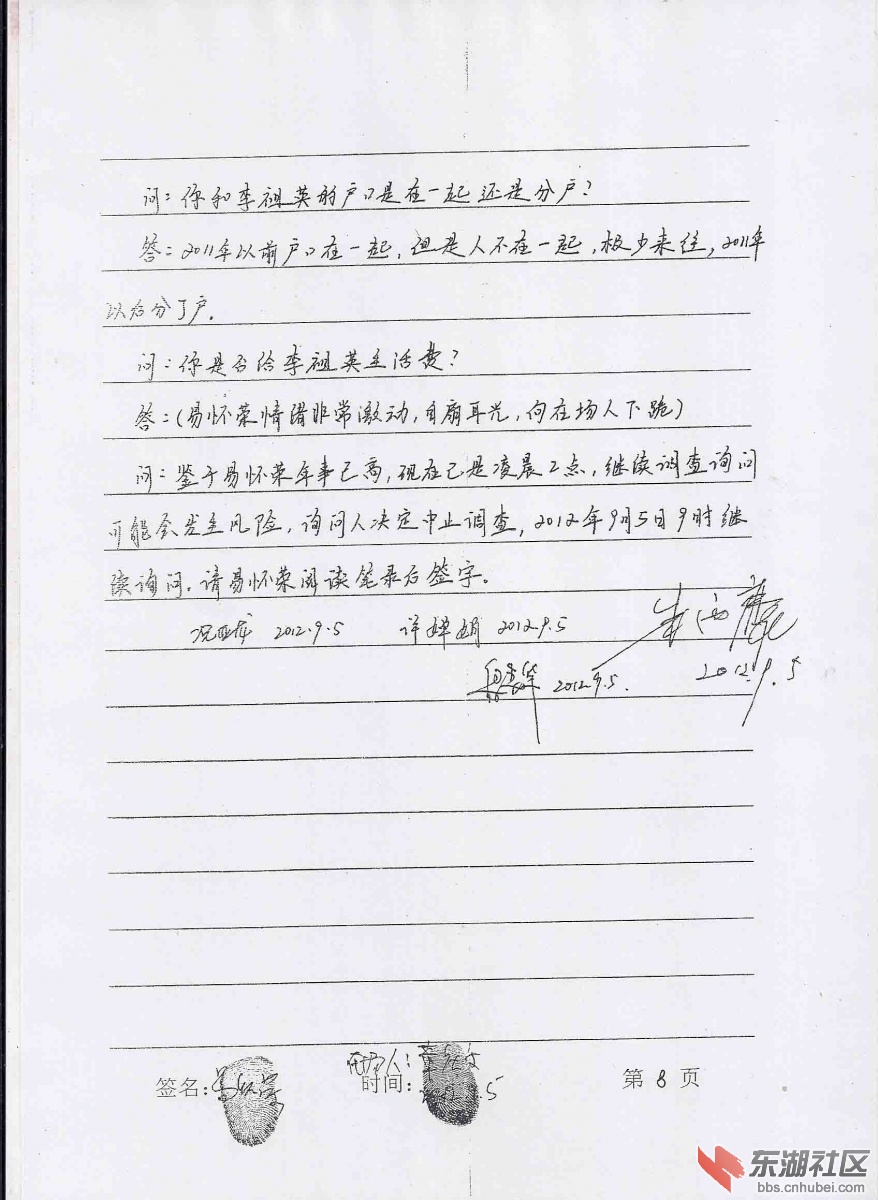 问：你和李祖英的户口是在一起还是分户？
答：2011年以前户口在一起，但是人不在一起，极少来往，2011年
以后分了户.
问：你是否给李祖英生活费？
答：（易怀荣情绪非常激动，自扇耳光，向在场人下跪）
问：鉴于易怀荣年事已高，现在已是凌晨2点，继续调查询问
可能会发生风险，询问人决定中止调查，2012年9月5日9时继
续询问. 请易怀荣阅读笔录后签字。
2012.9.5 许婵娟 2012.9.5
2012.9.5. 2012.9.5
签名： 时间： 第 8 页
东湖社区
bbs.cnhubei.com